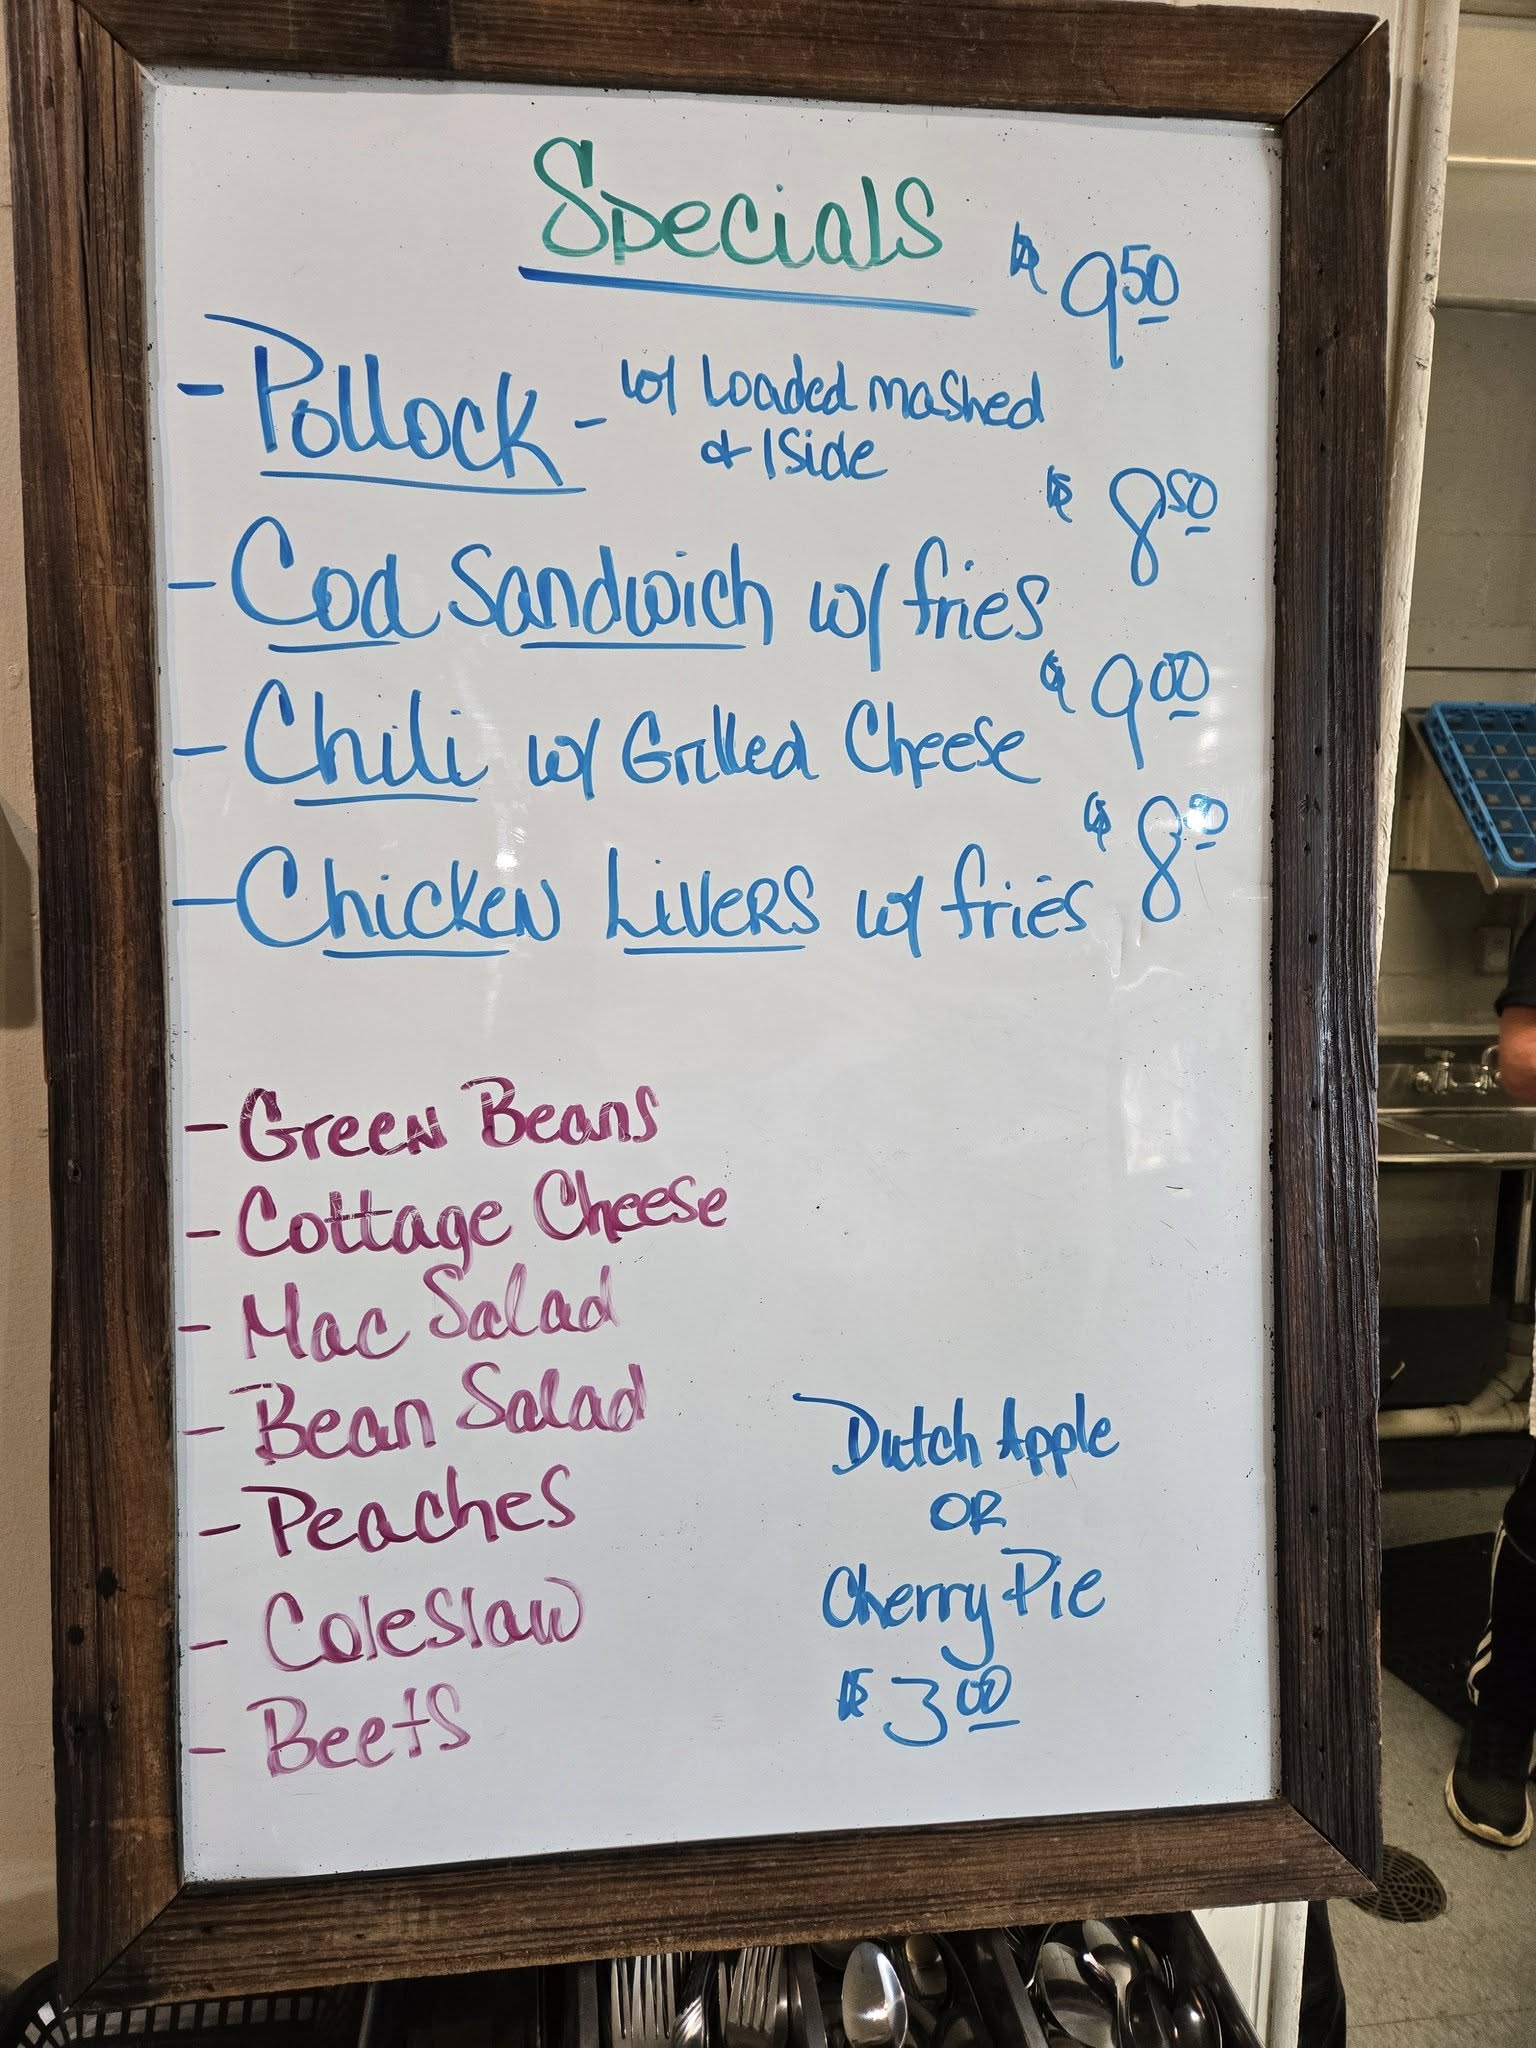 Specials
$9.50
- Pollock - w/ Loaded mashed
& 1 side
$8.50
- Cod Sandwich w/ fries
$9.00
- Chili w/ Grilled Cheese
$8
- Chicken Livers w/ fries
- Green Beans
- Cottage Cheese
- Mac Salad
- Bean Salad
- Peaches
- Coleslaw
- Beets
Dutch Apple
OR
Cherry Pie
$3.00